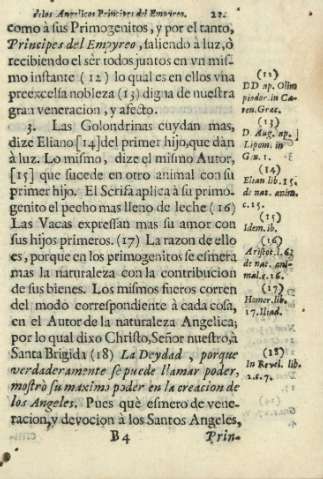 de los Angelicos Principes del Empyreo. 22.
como à sus Primogenitos, y por el tanto,
Principes del Empyreo, saliendo à luz, ò
recibiendo el sèr todos juntos en vn mis-
mo instante (12) lo qual es en ellos vna
preexcelsa nobleza (13) digna de nuestra
gran veneracion, y afecto.
3. Las Golondrinas cuydan mas,
dize Eliano [14] del primer hijo, que dan
à luz. Lo mismo, dize el mismo Autor,
[15] que sucede en otro animal con su
primer hijo. El Scrifa aplica à su primo-
genito el pecho mas lleno de leche (16)
Las Vacas expressan mas su amor con
sus hijos primeros. (17) La razon de ello
es, porque en los primogenitos se esmera
mas la naturaleza con la contribucion
de sus bienes. Los mismos fueros corren
del modo correspondiente à cada cosa,
en el Autor de la naturaleza Angelica;
por lo qual dixo Christo, Señor nuestro, à
Santa Brigida (18) La Deydad, porque
verdaderamente se puede llamar poder,
mostrò su maximo poder en la creacion de
los Angeles. Pues què esmero de vene-
racion, y devocion à los Santos Angeles,
B4 Prin-
(12)
DD. ap. Olim
piodor. in Ca-
ten. Græc.
(13)
D. Aug. ap.
Lipom. in
Gen. 1.
(14)
Elean lib. 15.
de nat. anim.
c. 15.
(15)
Idem. ib.
(16)
Aristot. l. 6.
de nat. ani-
mal. c. 16.
(17)
Homer. lib.
17. Iliad.
(18)
In Revel. lib.
2. c. 7.